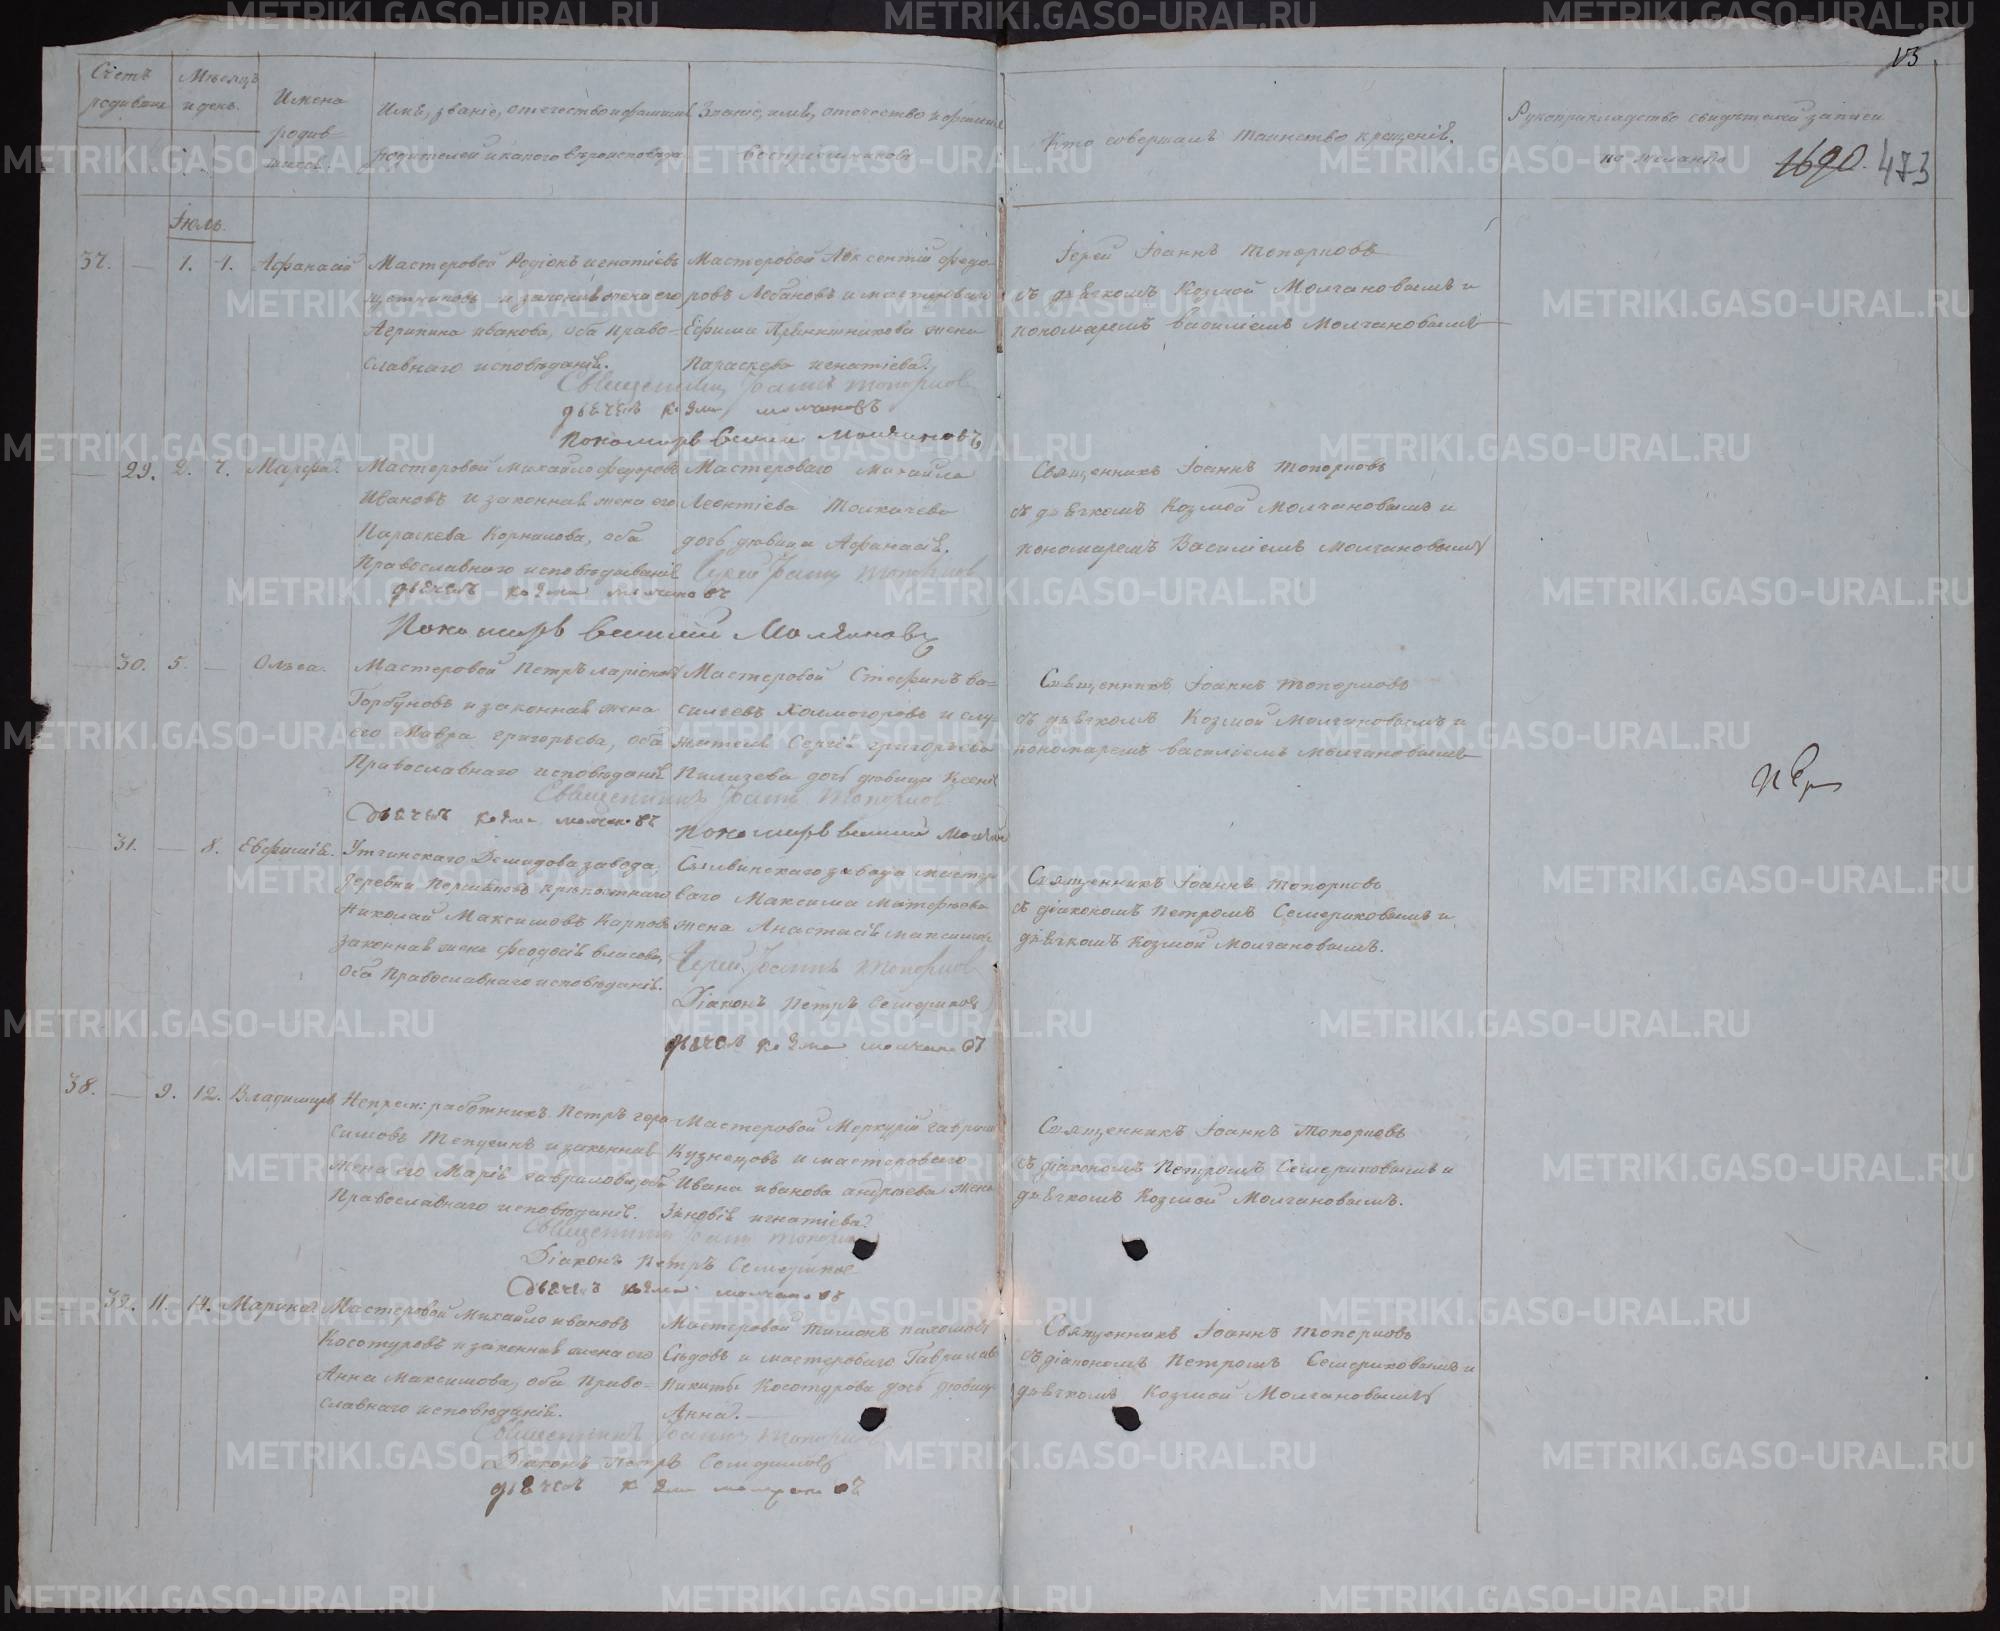 13
Счетъ
родившихся
Мѣсяцъ
и день.
Имена
родив-
шихся.
Имя, званіе, отечество и фамилія
родителей и какого вѣроисповѣда
Званіе, имя, отечество и фамилія
воспріемниковъ
Кто совершалъ таинство крещенія.
Рукоприкладство свидѣтелей записи
по желанію
1690. 473
Іюль.
37. — 1. 1. Афанасій
Мастеровой Родіонъ игнатіевъ
и законная жена его
Агрипина иванова, оба право-
славнаго исповѣданія.
Мастеровой Авксентій федо-
ровъ Лобановъ и мастероваго
Ефима жена
Параскева игнатіева.
Іерей Іоаннъ Топорковъ
съ дьячкомъ Козмой Молчановымъ и
пономаремъ василіемъ Молчановымъ
Священникъ Іоаннъ Топорковъ
дьячекъ козма молчановъ
Пономарь василий Молчановъ
— 29. 2. 7. Марфа.
Мастеровой Михайло федоровъ
Ивановъ и законная жена его
Параскева Корнилова, оба
Православнаго исповѣданія
Мастероваго Михайла
Леонтіева Толкачева
дочь дѣвица Афанасія.
Священникъ Іоаннъ Топорковъ
съ дьячкомъ Козмой Молчановымъ и
пономаремъ Василіемъ Молчановымъ
Іерей Іоаннъ Топорковъ
дьячекъ козма молчановъ
Пономарь василий Молчановъ
— 30. 5. — Ольга.
Мастеровой Петръ ларіоновъ
Горбуновъ и законная жена
его Мавра григорьева, оба
Православнаго исповѣданія
Мастеровой Стефанъ ва-
сильевъ Холмогоровъ и слу
жителя Сергія григорьева
дочь дѣвица Ксенія
Священникъ Іоаннъ Топорковъ
съ дьячкомъ Козмой Молчановымъ и
пономаремъ василіемъ Молчановымъ
Священникъ Іоаннъ Топорковъ
Дьячекъ козма молчановъ
Пономарь василий Молчан
31. — 8. Евфимія.
Уткинскаго Демидова завода,
деревни крѣпостнаго
Николай Максимовъ Карповъ
законная жена феодосія власова,
оба Православнаго исповѣданія.
Сылвинскаго завода мастеро
ваго Максима Матфѣева
жена Анастасія максимов
Священникъ Іоаннъ Топорковъ
съ діакономъ Петромъ Семериковымъ и
дьячкомъ Козмой Молчановымъ.
Іерей Іоаннъ Топорковъ
Діаконъ Петръ Семериковъ
дьячекъ козма молчановъ
38. — 9. 12. Владимиръ
Непрем: работникъ Петръ гера
симовъ и законная
жена его Марія гаврилова, оба
Православнаго исповѣданія.
Мастеровой Меркурій гаврил
Кузнецовъ и мастероваго
Ивана иванова андреева жена
Зиновія игнатіева.
Священникъ Іоаннъ Топорковъ
съ діакономъ Петромъ Семериковымъ и
дьячкомъ Козмой Молчановымъ.
Священникъ Іоаннъ Топорков
Діаконъ Петръ Семериков
Дьячекъ козма молчановъ
— 32. 11. 14. Марина.
Мастеровой Михайло ивановъ
Косотуровъ и законная жена его
Анна Максимова, оба Право-
славнаго исповѣданія.
Мастеровой Тимонъ пахомовъ
Сѣдовъ и мастероваго Гаврила
Никиты Косотурова дочь дѣвица
Анна. —
Священникъ Іоаннъ Топорковъ
съ діакономъ Петромъ Семериковымъ и
дьячкомъ Козмой Молчановымъ
Священникъ Іоаннъ Топорков
Діаконъ Петръ Семериковъ
дьячекъ козма молчановъ
METRIKI.GASO-URAL.RU